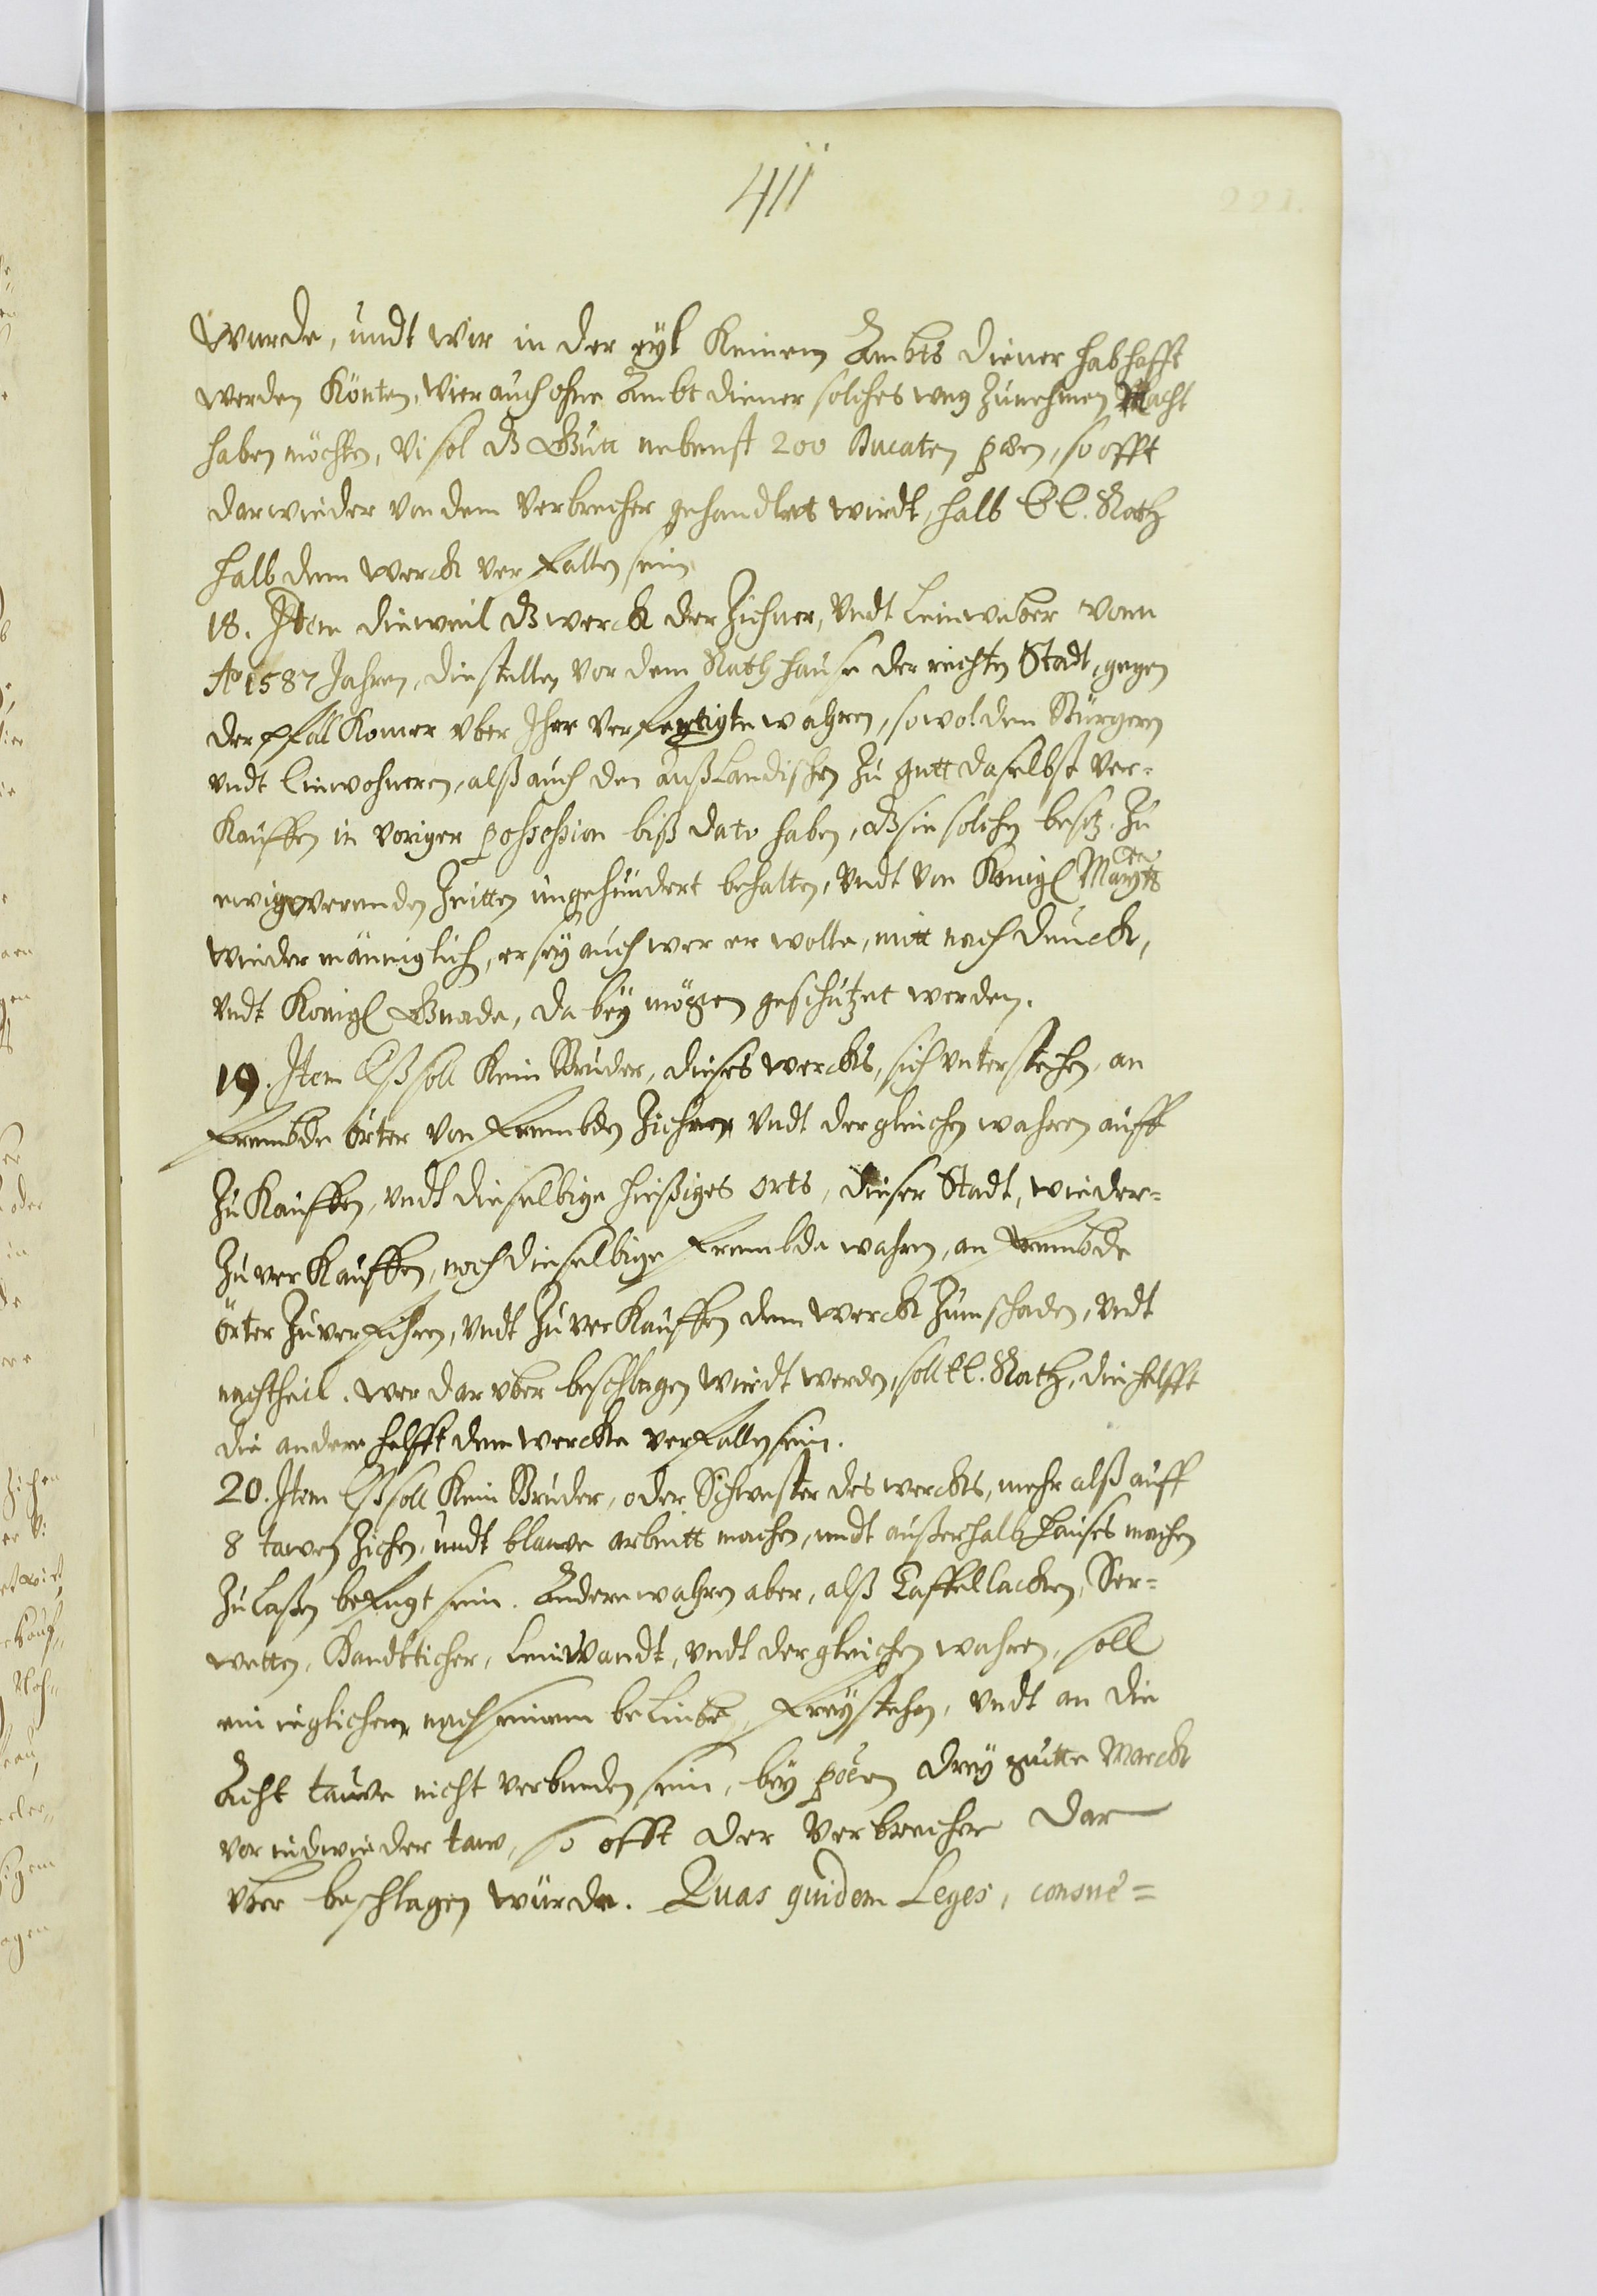 411
221.
Wurde, undt wir in der eyl Keinem Ambts diener habhafft
werden Könten, Wier auch ohne Ambt diener solches weg Zunehmen Macht
haben möchten, Vi sol dz Gutt nebenst 200 Ducaten pœn, so offt
darwieder von dem Verbrecher gehandlet wirdt, halb E E. Rath
halb dem Werck verfallen sein
18. Item dieweil dz werck der Ziehner, Undt Leinweber vom
Ao 1587 Jahren, die stellen vor dem Rathhause der rechten Stadt, gegen
der Pfall Komer vber Ihre verfertigte wahren, sowol den Bürgeren
vndt Einwohneren, alß auch den außlandischen Zu gutt daselbst ver-
Kauffen in voriger possession biß dato haben, dz sie solchen besitz. Zu
ewigwerenden Zeitten ungehindert behalten, Undt von Königl Maytt
wieder männiglich, er sey auch wer er wolle, mitt nach druck,
vndt Königl Gnade, da bey mögen geschützet werden.
19. Item Eß soll Kein Bruder, dieses wercks, sich unterstehen, an
frembde örter von frembden Ziehner Undt dergleichen wahren auff
Zu Kauffen, undt dieselbige hießiges orts, dieser Stadt, wieder-
Zuverkauffen, noch dieselbige frembde wahren, an frembde
örter Zuverfihren, Undt Zuverkauffen dem werck Zum schaden, undt
nachtheil. wer darvber beschlagen wirdt werden, soll E E. Rath, die helfft
die andere helfft dem wercke verfallen sein.
20. Item Eß soll Kein Bruder, oder Schwester des wercks, mehr alß auff
8 tawen Zichen, undt blawe arbeitt machen, undt außerhalb hauses machen
Zulaßen befugt sein. Andere wahren aber, alß Taffellacken, Ser-
wetten, Handtticher, Leinwandt, undt dergleichen wahren, soll
ein ieglichen nach seinem belieben, freystehen, undt an die
Acht tawe nicht verbunden sein, bey pöen drey gutte Marck
vor iedwieder taw, so offt der Verbrecher dar
vber beschlagen würde. Quas quidem Leges, consue=